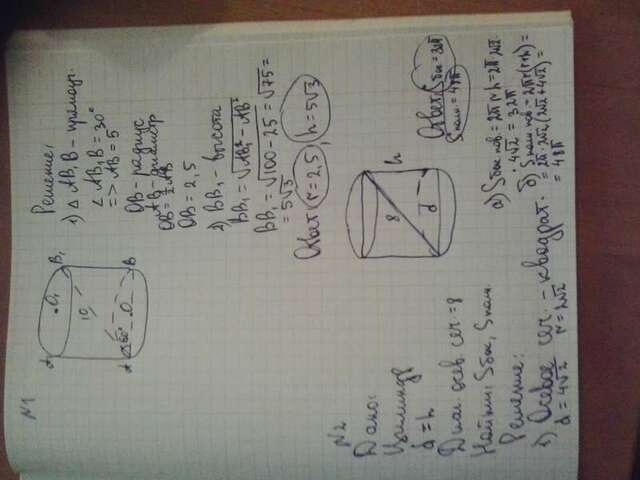 N1
A₁
O₁
B₁
10
60°
A
O
B
Решение:
1) △ AB₁B – прямоуг.
∠ AB₁B = 30°
=> AB = 5
OB – радиус
AB – диаметр
OB = ½ AB
OB = 2,5
2) BB₁ – высота
BB₁ = √AB₁² – AB²
BB₁ = √100 – 25 = √75 =
= 5√3
Ответ: r = 2,5, h = 5√3
N2
Дано:
Цилиндр
d = h
Диаг. осев. сеч. = 8
Найти: Sбок, Sполн.
Решение:
1) Осевое сеч. – квадрат.
d = 4√2 r = 2√2
8
h
d
Ответ: Sбок = 32π
Sполн. = 48π
а) Sбок. пов. = 2π r h = 2π 2√2
· 4√2 = 32π
б) Sполн. пов. = 2πr(r+h) =
= 2π · 2√2 (2√2 + 4√2) =
= 48π